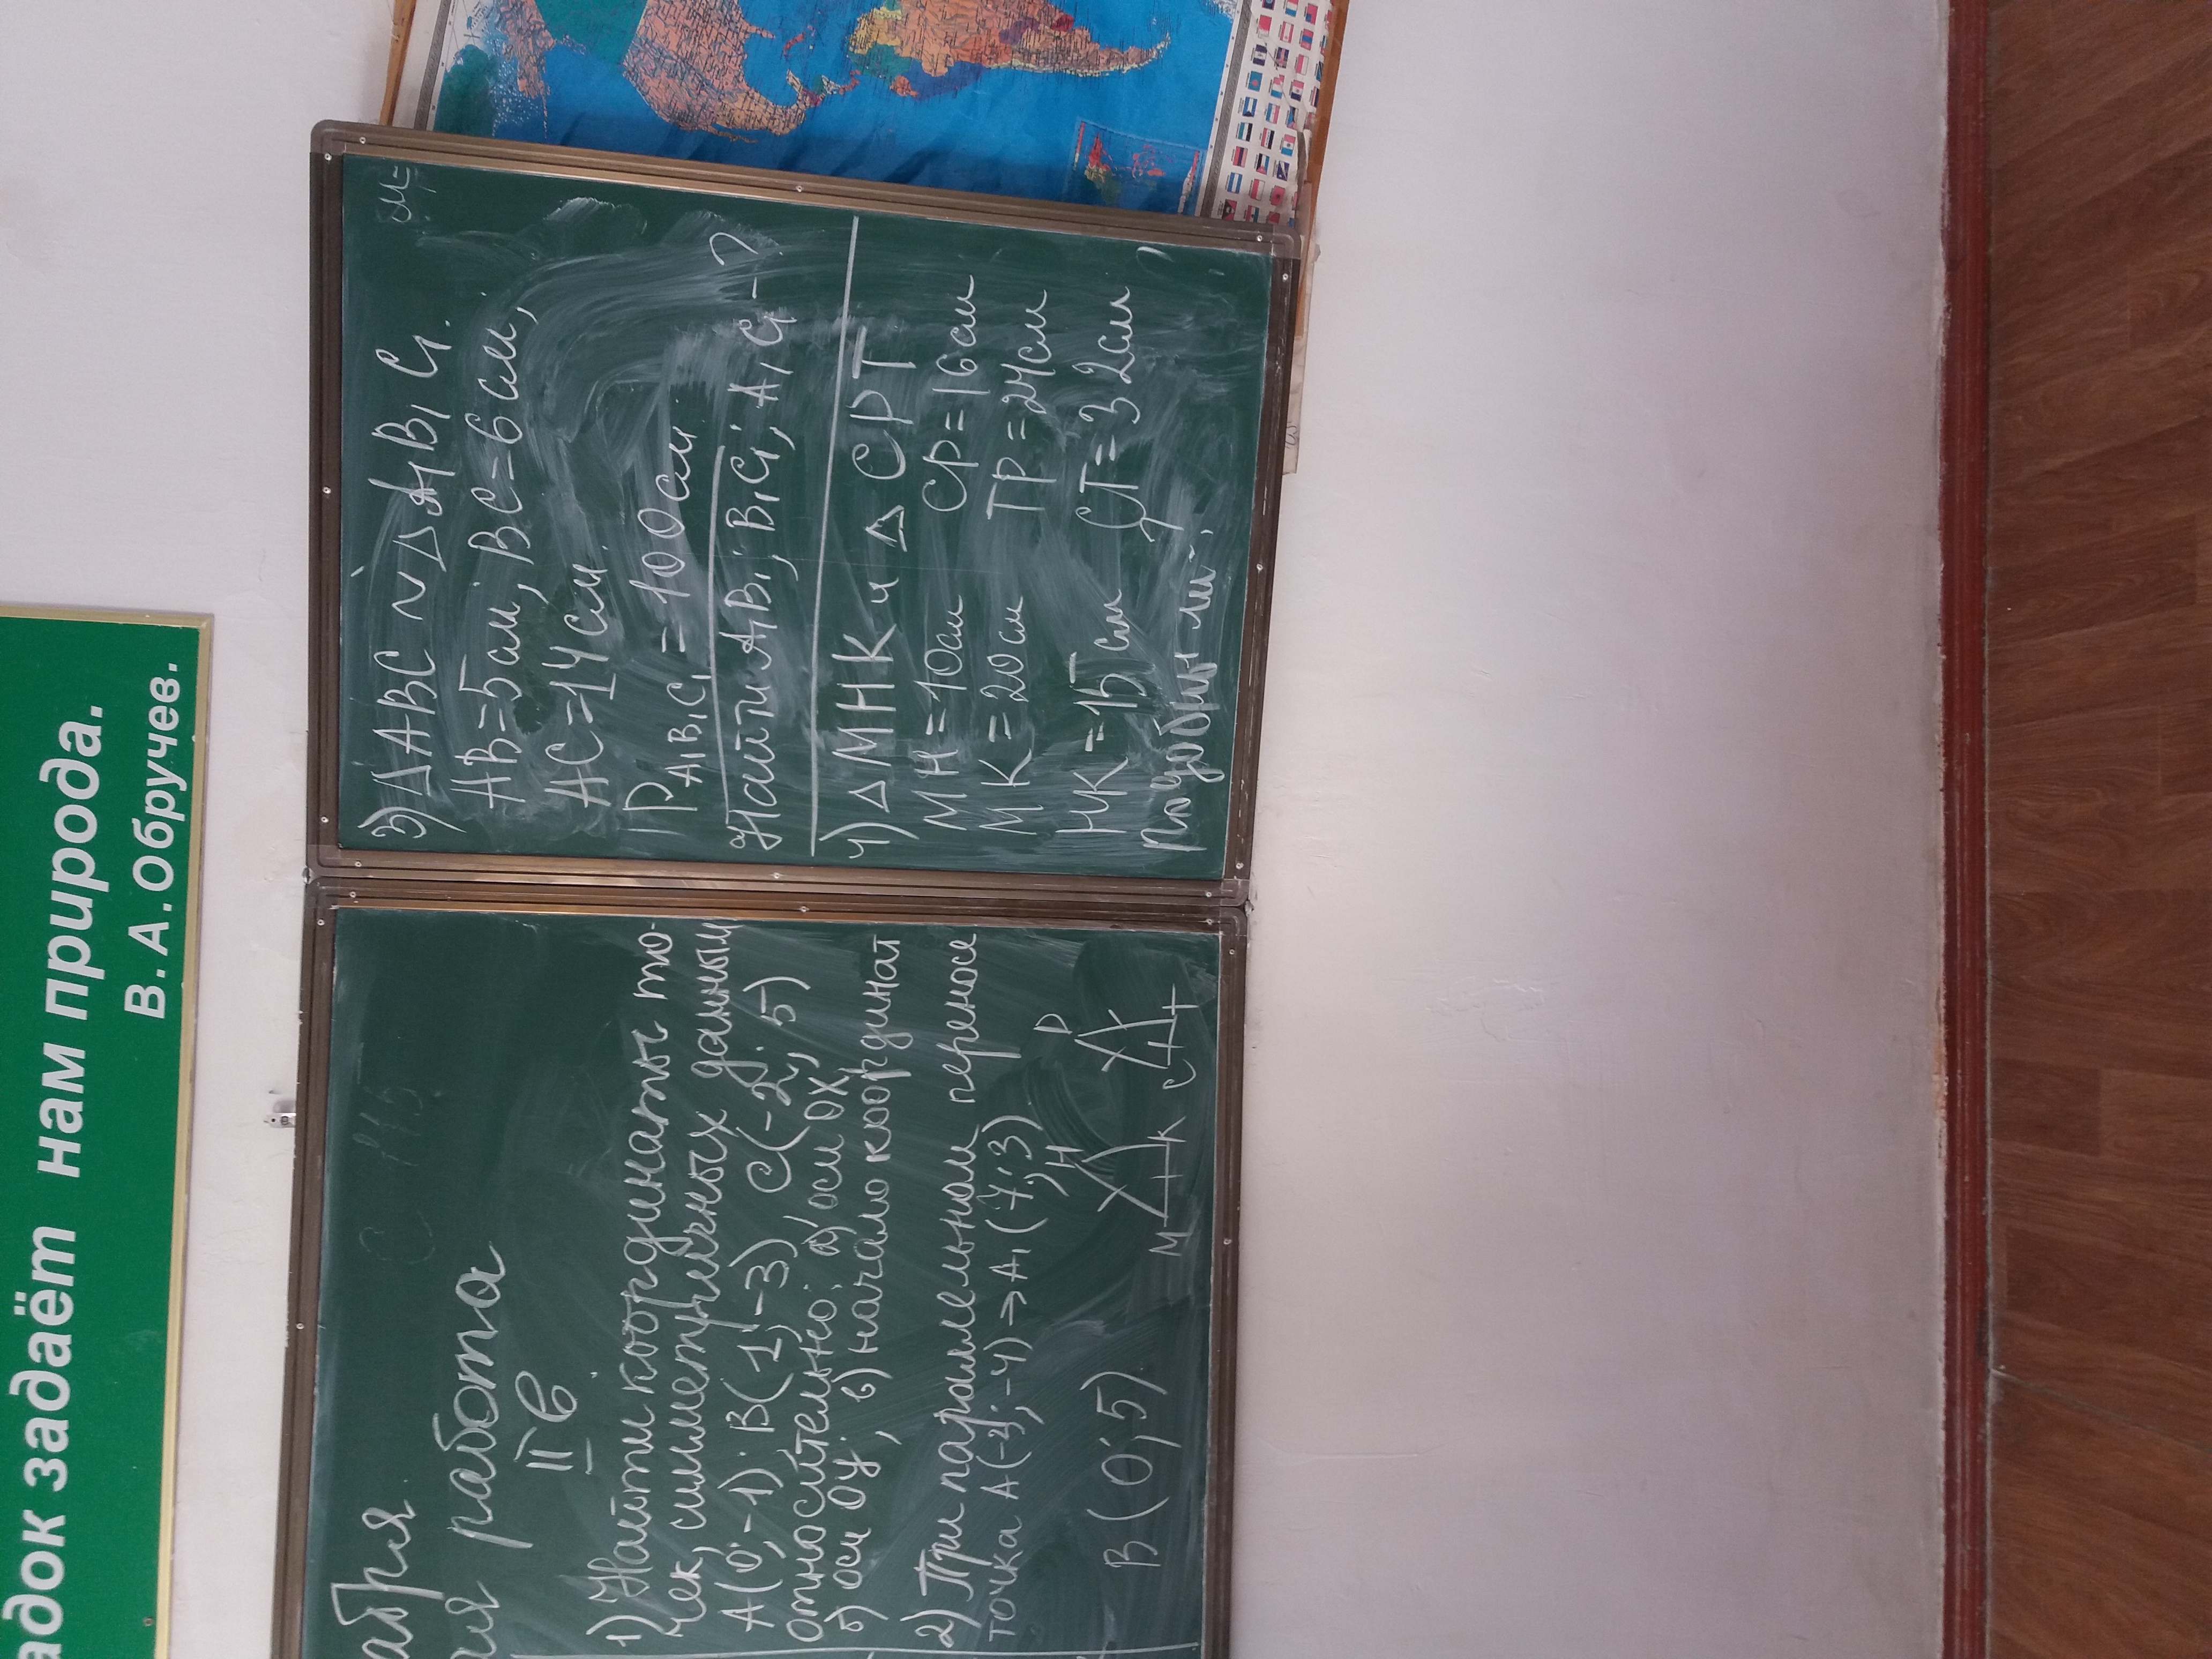 адок задаёт нам природа.
В.А.Обручев.
абря
ая работа
II в
1) Найти координаты то-
чек, симметричных данным
A(0;-1); B(1;-3) C(-2;5)
относительно: а) оси OX,
б) оси OY, в) начало координат
2) При параллельном переносе
точка A(-2;-4) → A₁(7;3)
B(0;5)
H
P
M
K
C
T
3) ΔABC ~ ΔA₁B₁C₁.
AB=5см, BC=6см,
AC=14см.
P A₁B₁C₁ = 100см
Найти A₁B₁; B₁C₁; A₁C₁-?
4) ΔMHK и ΔCPT
MH=10см CP=16см
MK=20см TP=24см
HK=15см CT=32см
подобны ли-?